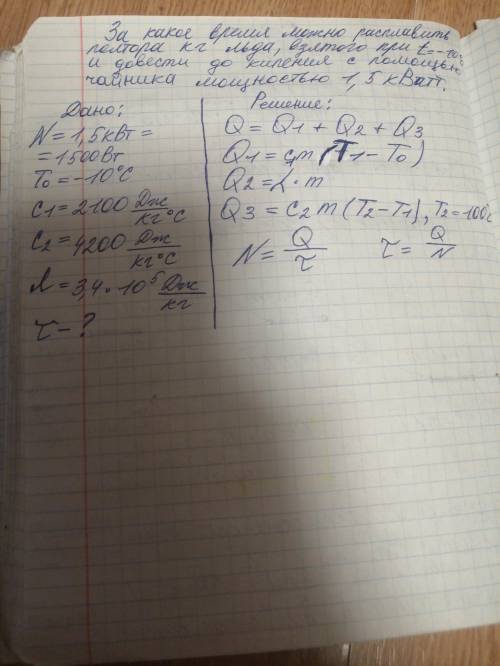 За какое время можно расплавить
полтора кг льда, взятого при t=-10°
и довести до кипения с помощью
чайника мощностью 1,5 кВатт.
Дано:
N = 1,5кВт =
= 1500Вт
T0 = -10°C
c1 = 2100 Дж/кг°C
c2 = 4200 Дж/кг°C
λ = 3,4·10⁵ Дж/кг
τ - ?
Решение:
Q = Q1 + Q2 + Q3
Q1 = c1m (T1 - T0)
Q2 = λ · m
Q3 = c2 m (T2 - T1), T2 = 100°C
N = Q/τ τ = Q/N